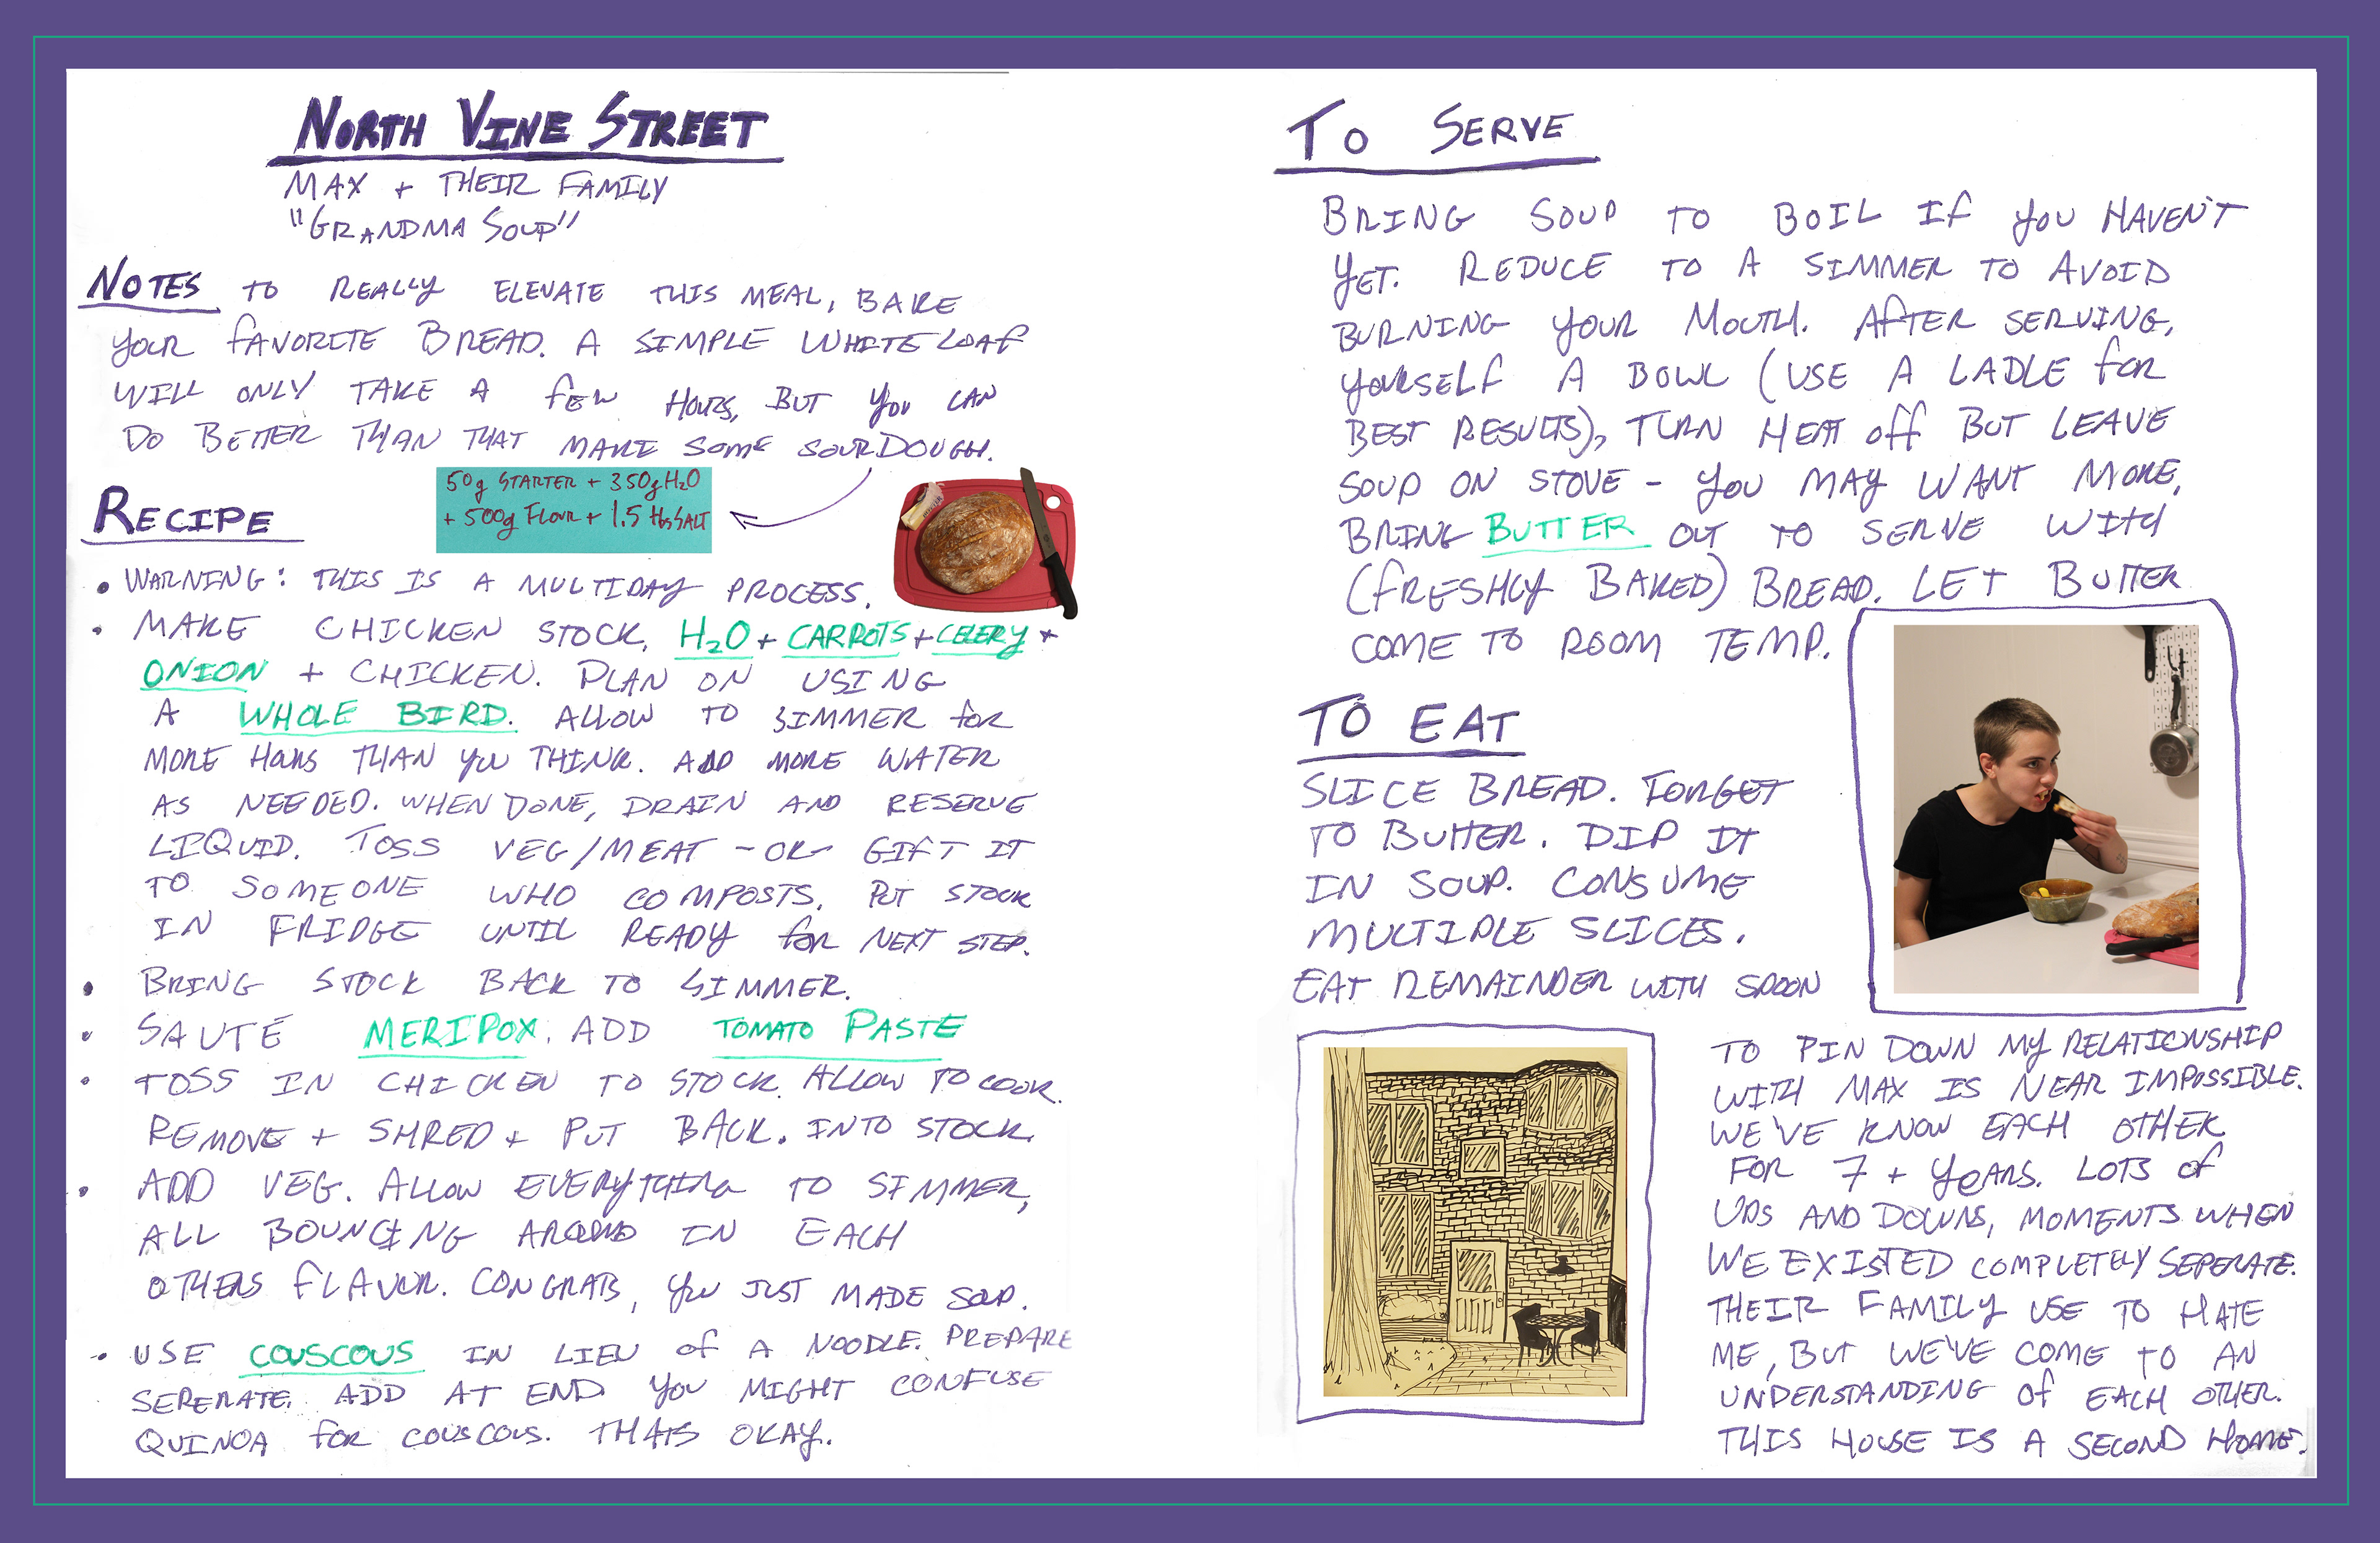 NORTH VINE STREET
MAX + THEIR FAMILY
"GRANDMA SOUP"
NOTES TO REALLY ELEVATE THIS MEAL, BAKE
YOUR FAVORITE BREAD. A SIMPLE WHITE LOAF
WILL ONLY TAKE A FEW HOURS, BUT YOU CAN
DO BETTER THAN THAT MAKE SOME SOURDOUGH.
50g STARTER + 350g H₂O
+ 500g FLOUR + 1.5 tbs SALT
RECIPE
• WARNING: THIS IS A MULTIDAY PROCESS.
• MAKE CHICKEN STOCK, H₂O + CARROTS + CELERY +
ONION + CHICKEN. PLAN ON USING
A WHOLE BIRD. ALLOW TO SIMMER FOR
MORE HOURS THAN YOU THINK. ADD MORE WATER
AS NEEDED. WHEN DONE, DRAIN AND RESERVE
LIQUID. TOSS VEG/MEAT -OR- GIFT IT
TO SOMEONE WHO COMPOSTS. PUT STOCK
IN FRIDGE UNTIL READY FOR NEXT STEP.
• BRING STOCK BACK TO SIMMER.
• SAUTÉ MERIPOX. ADD TOMATO PASTE
• TOSS IN CHICKEN TO STOCK. ALLOW TO COOK.
REMOVE + SHRED + PUT BACK. INTO STOCK.
• ADD VEG. ALLOW EVERYTHING TO SIMMER,
ALL BOUNCING AROUND IN EACH
OTHERS FLAVOR. CONGRATS, YOU JUST MADE SOUP.
• USE COUSCOUS IN LIEU OF A NOODLE. PREPARE
SEPERATE. ADD AT END YOU MIGHT CONFUSE
QUINOA FOR COUSCOUS. THATS OKAY.
TO SERVE
BRING SOUP TO BOIL IF YOU HAVEN'T
YET. REDUCE TO A SIMMER TO AVOID
BURNING YOUR MOUTH. AFTER SERVING,
YOURSELF A BOWL (USE A LADLE FOR
BEST RESULTS), TURN HEAT OFF BUT LEAVE
SOUP ON STOVE - YOU MAY WANT MORE.
BRING BUTTER OUT TO SERVE WITH
(FRESHLY BAKED) BREAD. LET BUTTER
COME TO ROOM TEMP.
TO EAT
SLICE BREAD. FORGET
TO BUTTER. DIP IT
IN SOUP. CONSUME
MULTIPLE SLICES.
EAT REMAINDER WITH SPOON
TO PIN DOWN MY RELATIONSHIP
WITH MAX IS NEAR IMPOSSIBLE.
WE'VE KNOW EACH OTHER
FOR 7 + YEARS. LOTS OF
UPS AND DOWNS, MOMENTS WHEN
WE EXISTED COMPLETELY SEPERATE.
THEIR FAMILY USE TO HATE
ME, BUT WE'VE COME TO AN
UNDERSTANDING OF EACH OTHER.
THIS HOUSE IS A SECOND HOME.